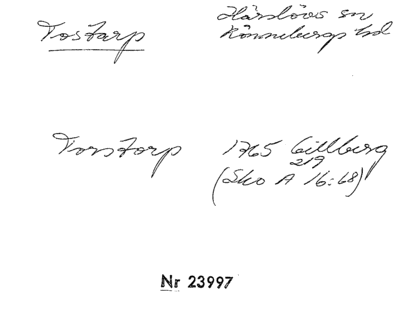 Tostarp
Härslövs sn
Rönnebergs hd
Torstorp
1765 Gillberg
219
(Sko A 16:68)
Nr 23997